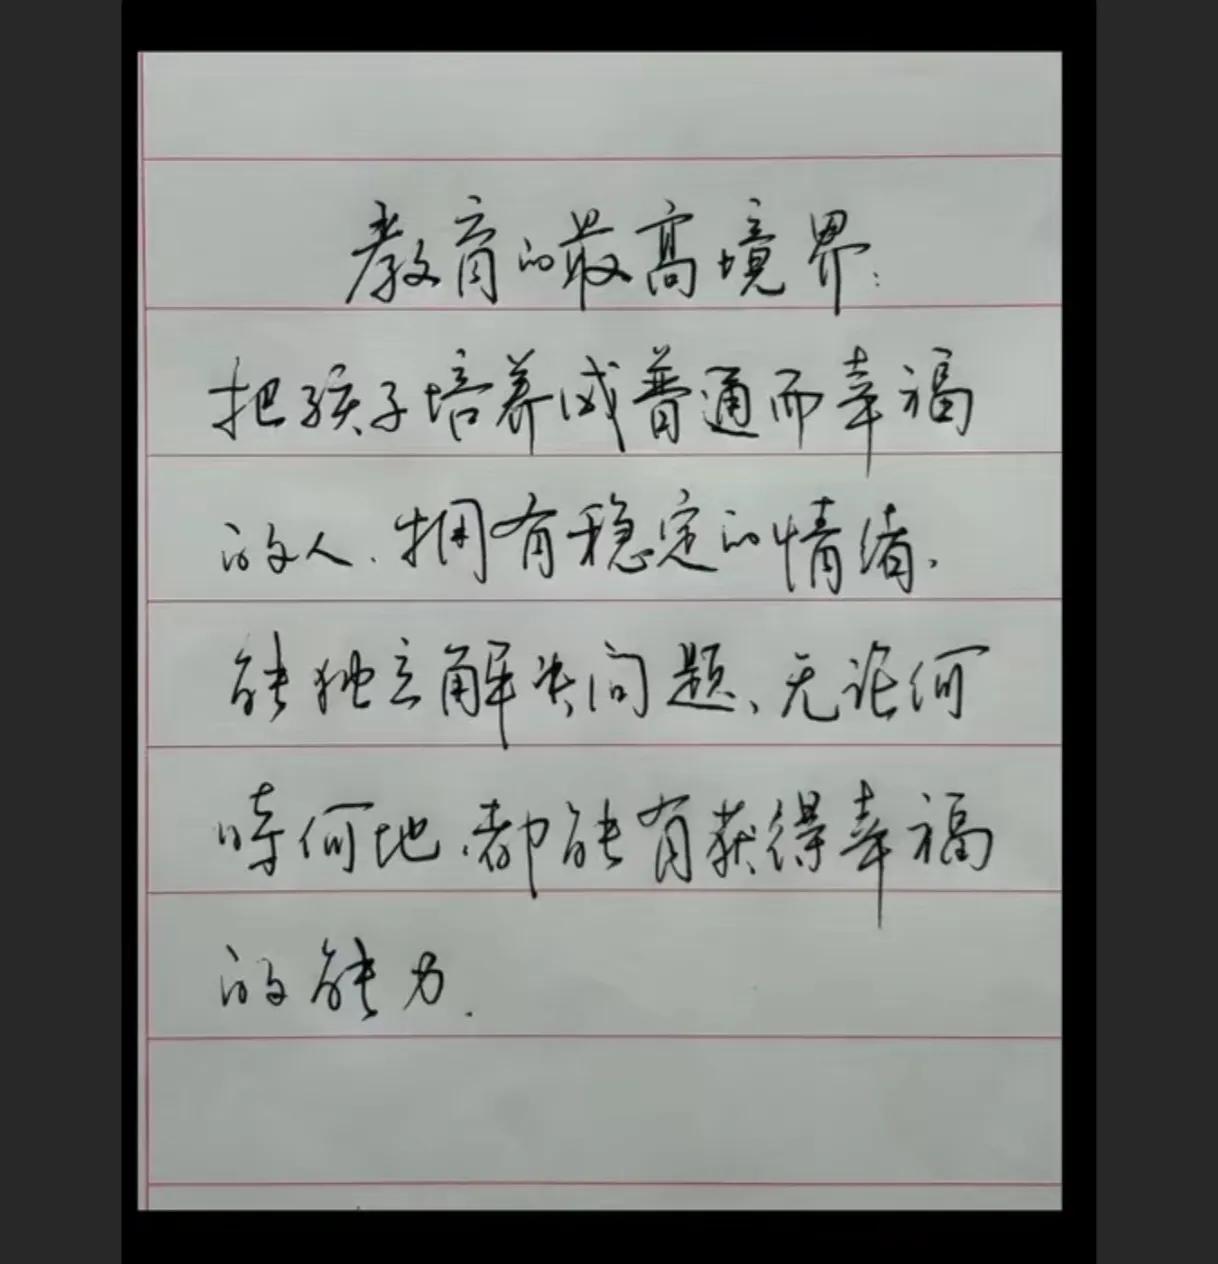 教育的最高境界：
把孩子培养成普通而幸福
的人、拥有稳定的情绪、
能独立解决问题、无论何
时何地、都能有获得幸福
的能力.